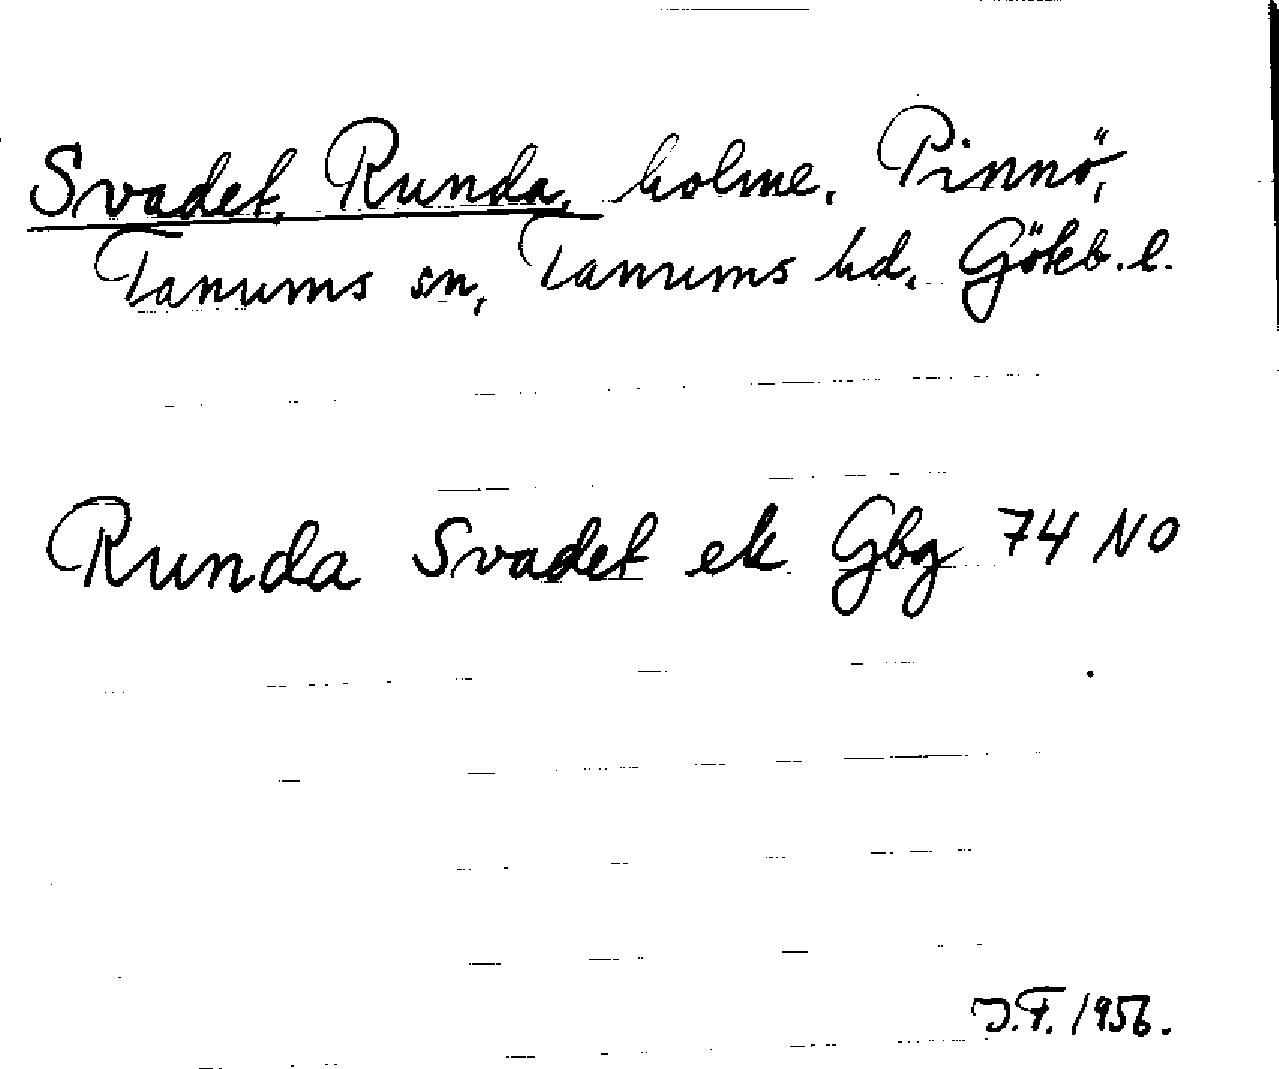 Svadet, Runda, holme, Pinnö,
Tanums sn, Tanums hd, Göteb. l.
Runda Svadet ek Gbg 74 NO
J.F. 1956.